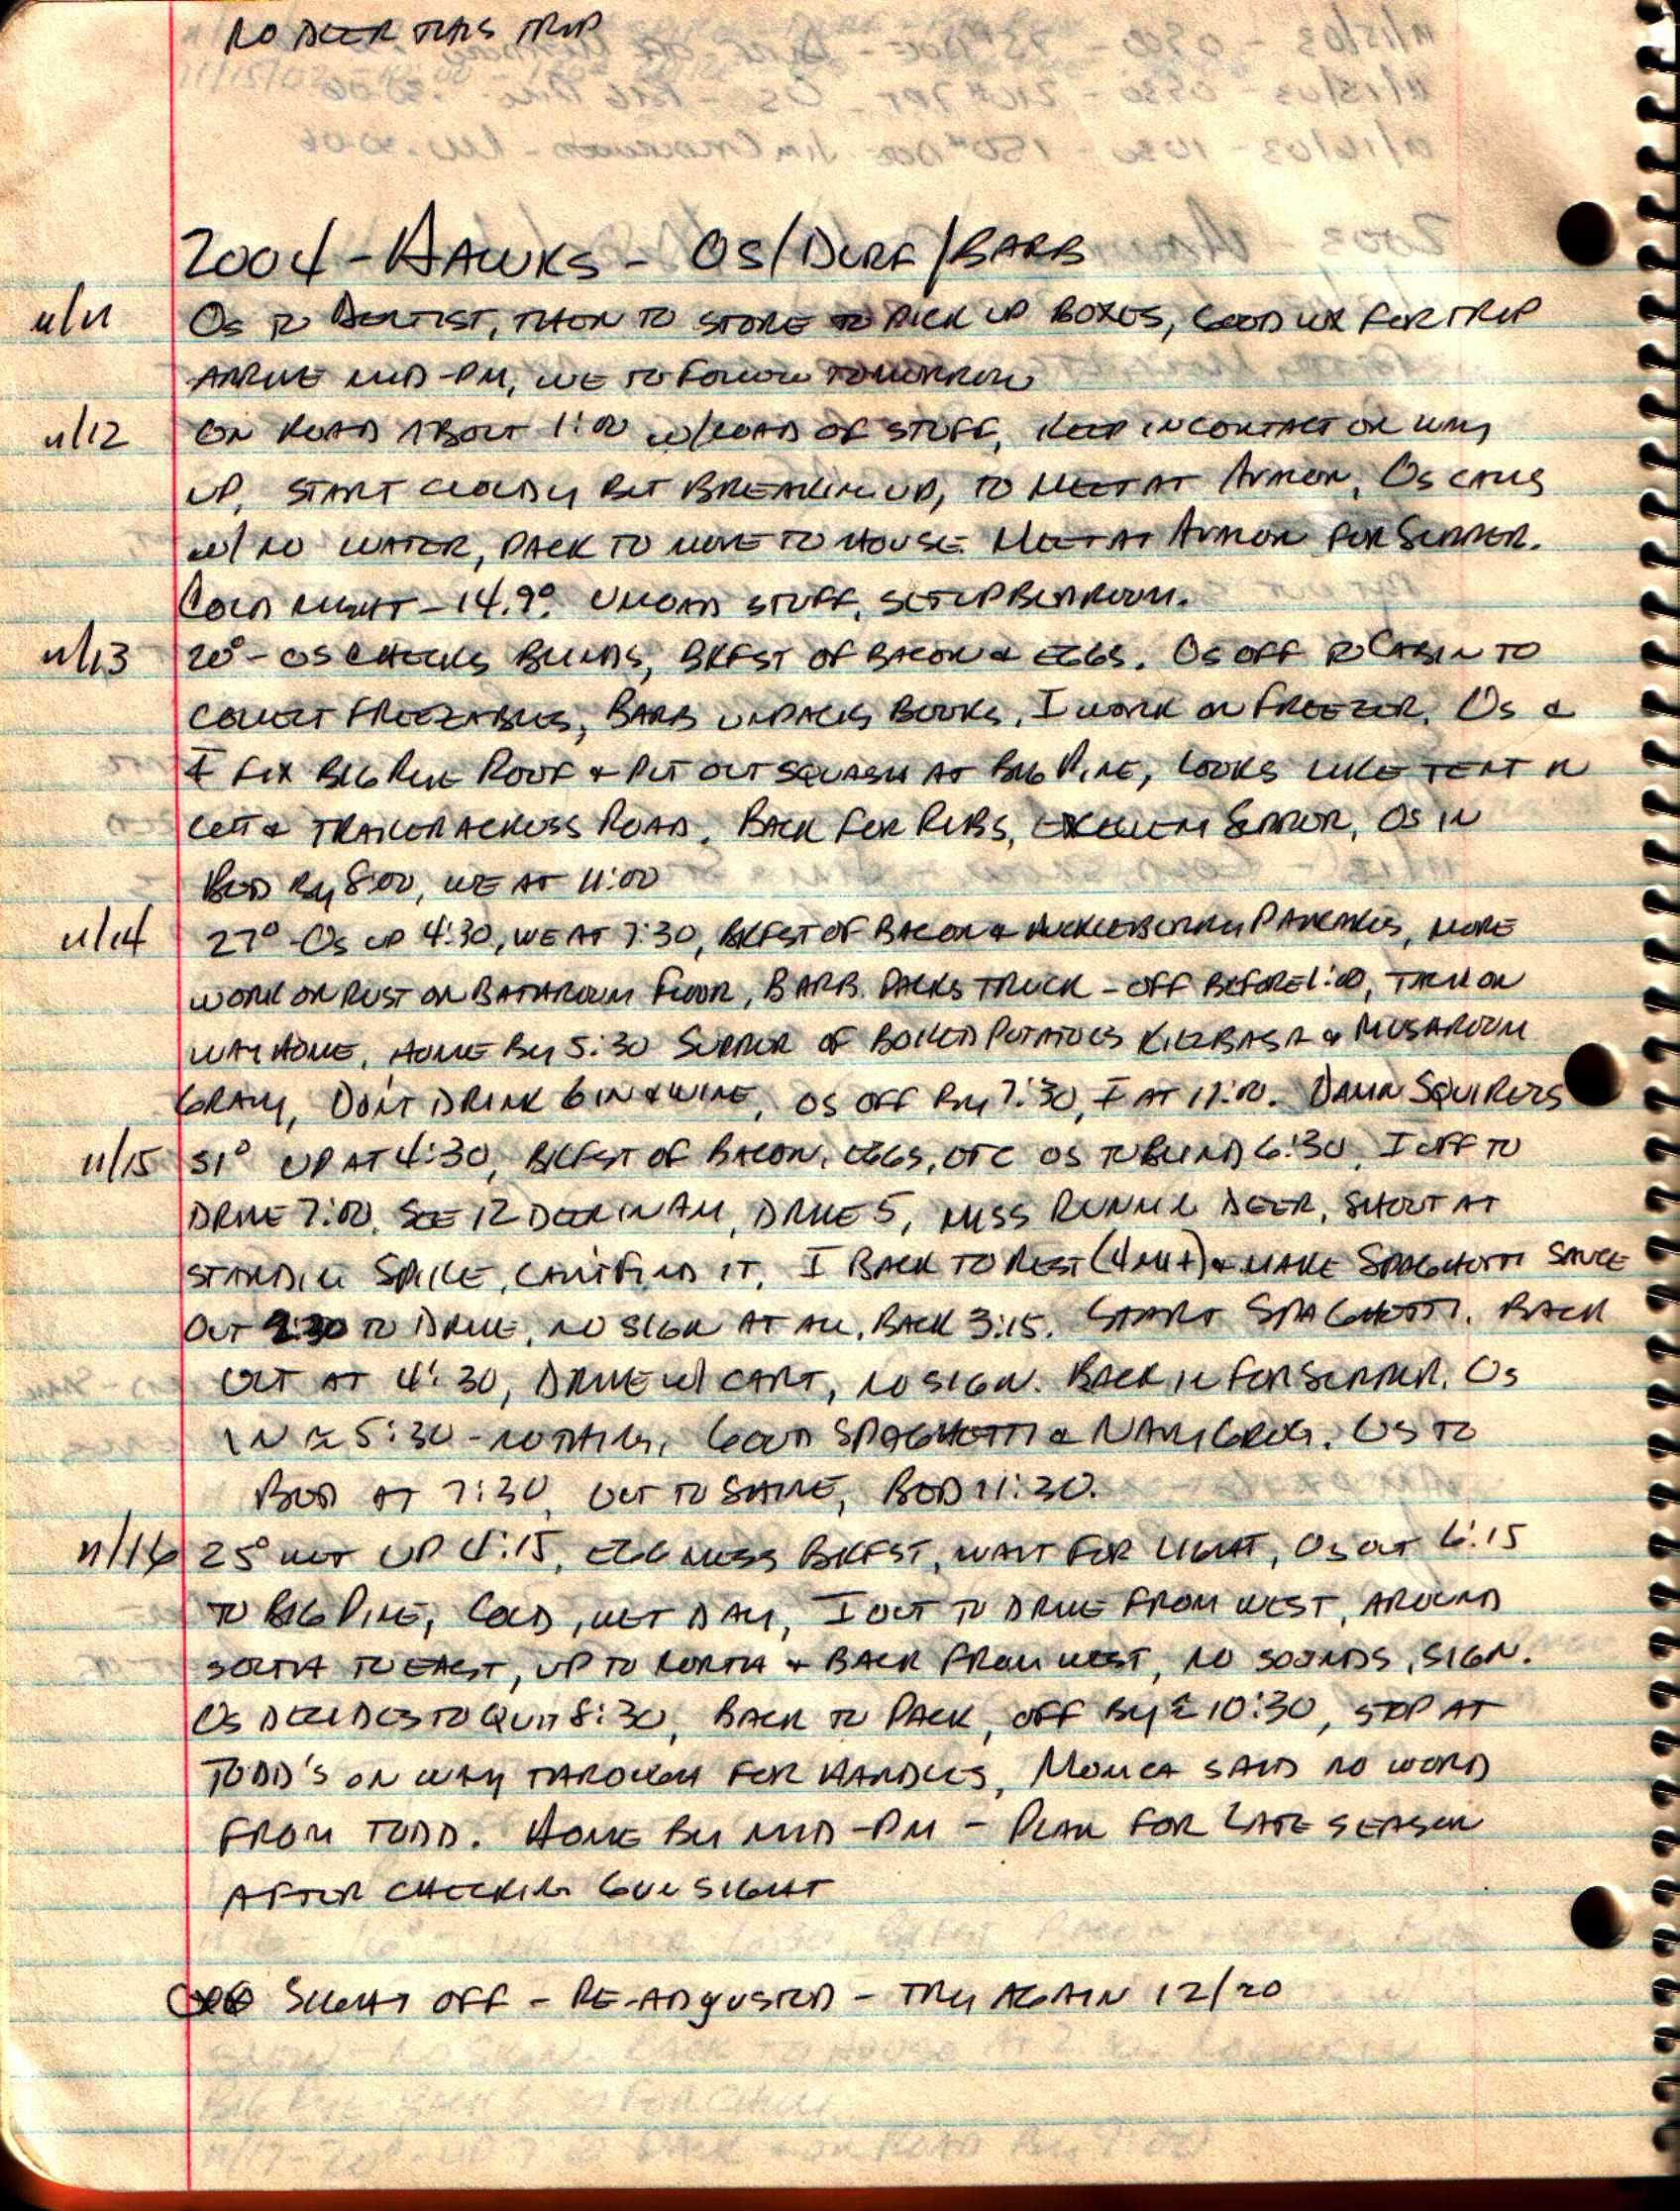 NO DEER THIS TRIP
2004 - HAWKS - OS/DERF/BARB
11/11 OS TO DENTIST, THEN TO STORE TO PICK UP BOXES, GOOD WX FOR TRIP
ARRIVE MID-PM, WE TO FOLLOW TOMORROW
11/12 ON ROAD ABOUT 1:00 W/LOAD OF STUFF, KEEP IN CONTACT ON WAY
UP, START CLOUDY BUT BREAKING UP, TO MEET AT . OS CALLS
W/ NO WATER, PACK TO MOVE TO HOUSE. MEET AT FOR SUPPER.
COLD NIGHT - 14.9°. UNLOAD STUFF, SET UP BEDROOM.
11/13 20° - OS CHECKS BLINDS, BKFST OF BACON & EGGS. OS OFF TO CABIN TO
COLLECT FREEZABLES, BARB UNPACKS BOOKS, I WORK ON FREEZER. OS &
I FIX BIG PINE ROOF & PUT OUT SQUASH AT BIG PINE, LOOKS LIKE TENT IN
CUT & TRAILER ACROSS ROAD. BACK FOR RIBS, EXCELLENT SUPPER, OS IN
BED BY 8:00, WE AT 11:00
11/14 27° - OS UP 4:30, WE AT 7:30, BKFST OF BACON & HUCKLEBERRY PANCAKES, MORE
WORK ON RUST ON BATHROOM FLOOR, BARB PACKS TRUCK - OFF BEFORE 1:00, TALK ON
WAY HOME, HOME BY 5:30 SUPPER OF BOILED POTATOES KIELBASA & MUSHROOM
GRAVY, DON'T DRINK GIN & WINE, OS OFF BY 7:30, I AT 11:00. DAMN SQUIRELS
11/15 31° UP AT 4:30, BKFST OF BACON, EGGS, ETC OS TO BLIND 6:30, I OFF TO
DRIVE 7:00, SEE 12 DEER IN AM, DRIVE 5, MISS RUNNING DEER, SHOOT AT
STANDING SPIKE, CAN'T FIND IT. I BACK TO REST (4 MI+) & MAKE SPAGHETTI SAUCE
OUT 2:30 TO DRIVE, NO SIGN AT ALL, BACK 3:15. START SPAGHETTI. BACK
OUT AT 4:30, DRIVE W/ CART, NO SIGN. BACK IN FOR SUPPER. OS
IN ≈ 5:30 - NOTHING, GOOD SPAGHETTI & NAVY GROG. OS TO
BED AT 7:30, OUT TO SHINE, BED 11:30.
11/16 25° WET UP 4:15, EGG MESS BKFST, WAIT FOR LIGHT, OS OUT 6:15
TO BIG PINE, COLD, WET DAY, I OUT TO DRIVE FROM WEST, AROUND
SOUTH TO EAST, UP TO NORTH & BACK FROM WEST, NO SOUNDS, SIGN.
OS DECIDES TO QUIT 8:30, BACK TO PACK, OFF BY ≈ 10:30, STOP AT
TODD'S ON WAY THROUGH FOR HANDLES, MONICA SAID NO WORD
FROM TODD. HOME BY MID-PM - PLAN FOR LATE SEASON
AFTER CHECKING GUN SIGHT
SIGHT OFF - RE-ADJUSTED - TRY AGAIN 12/20